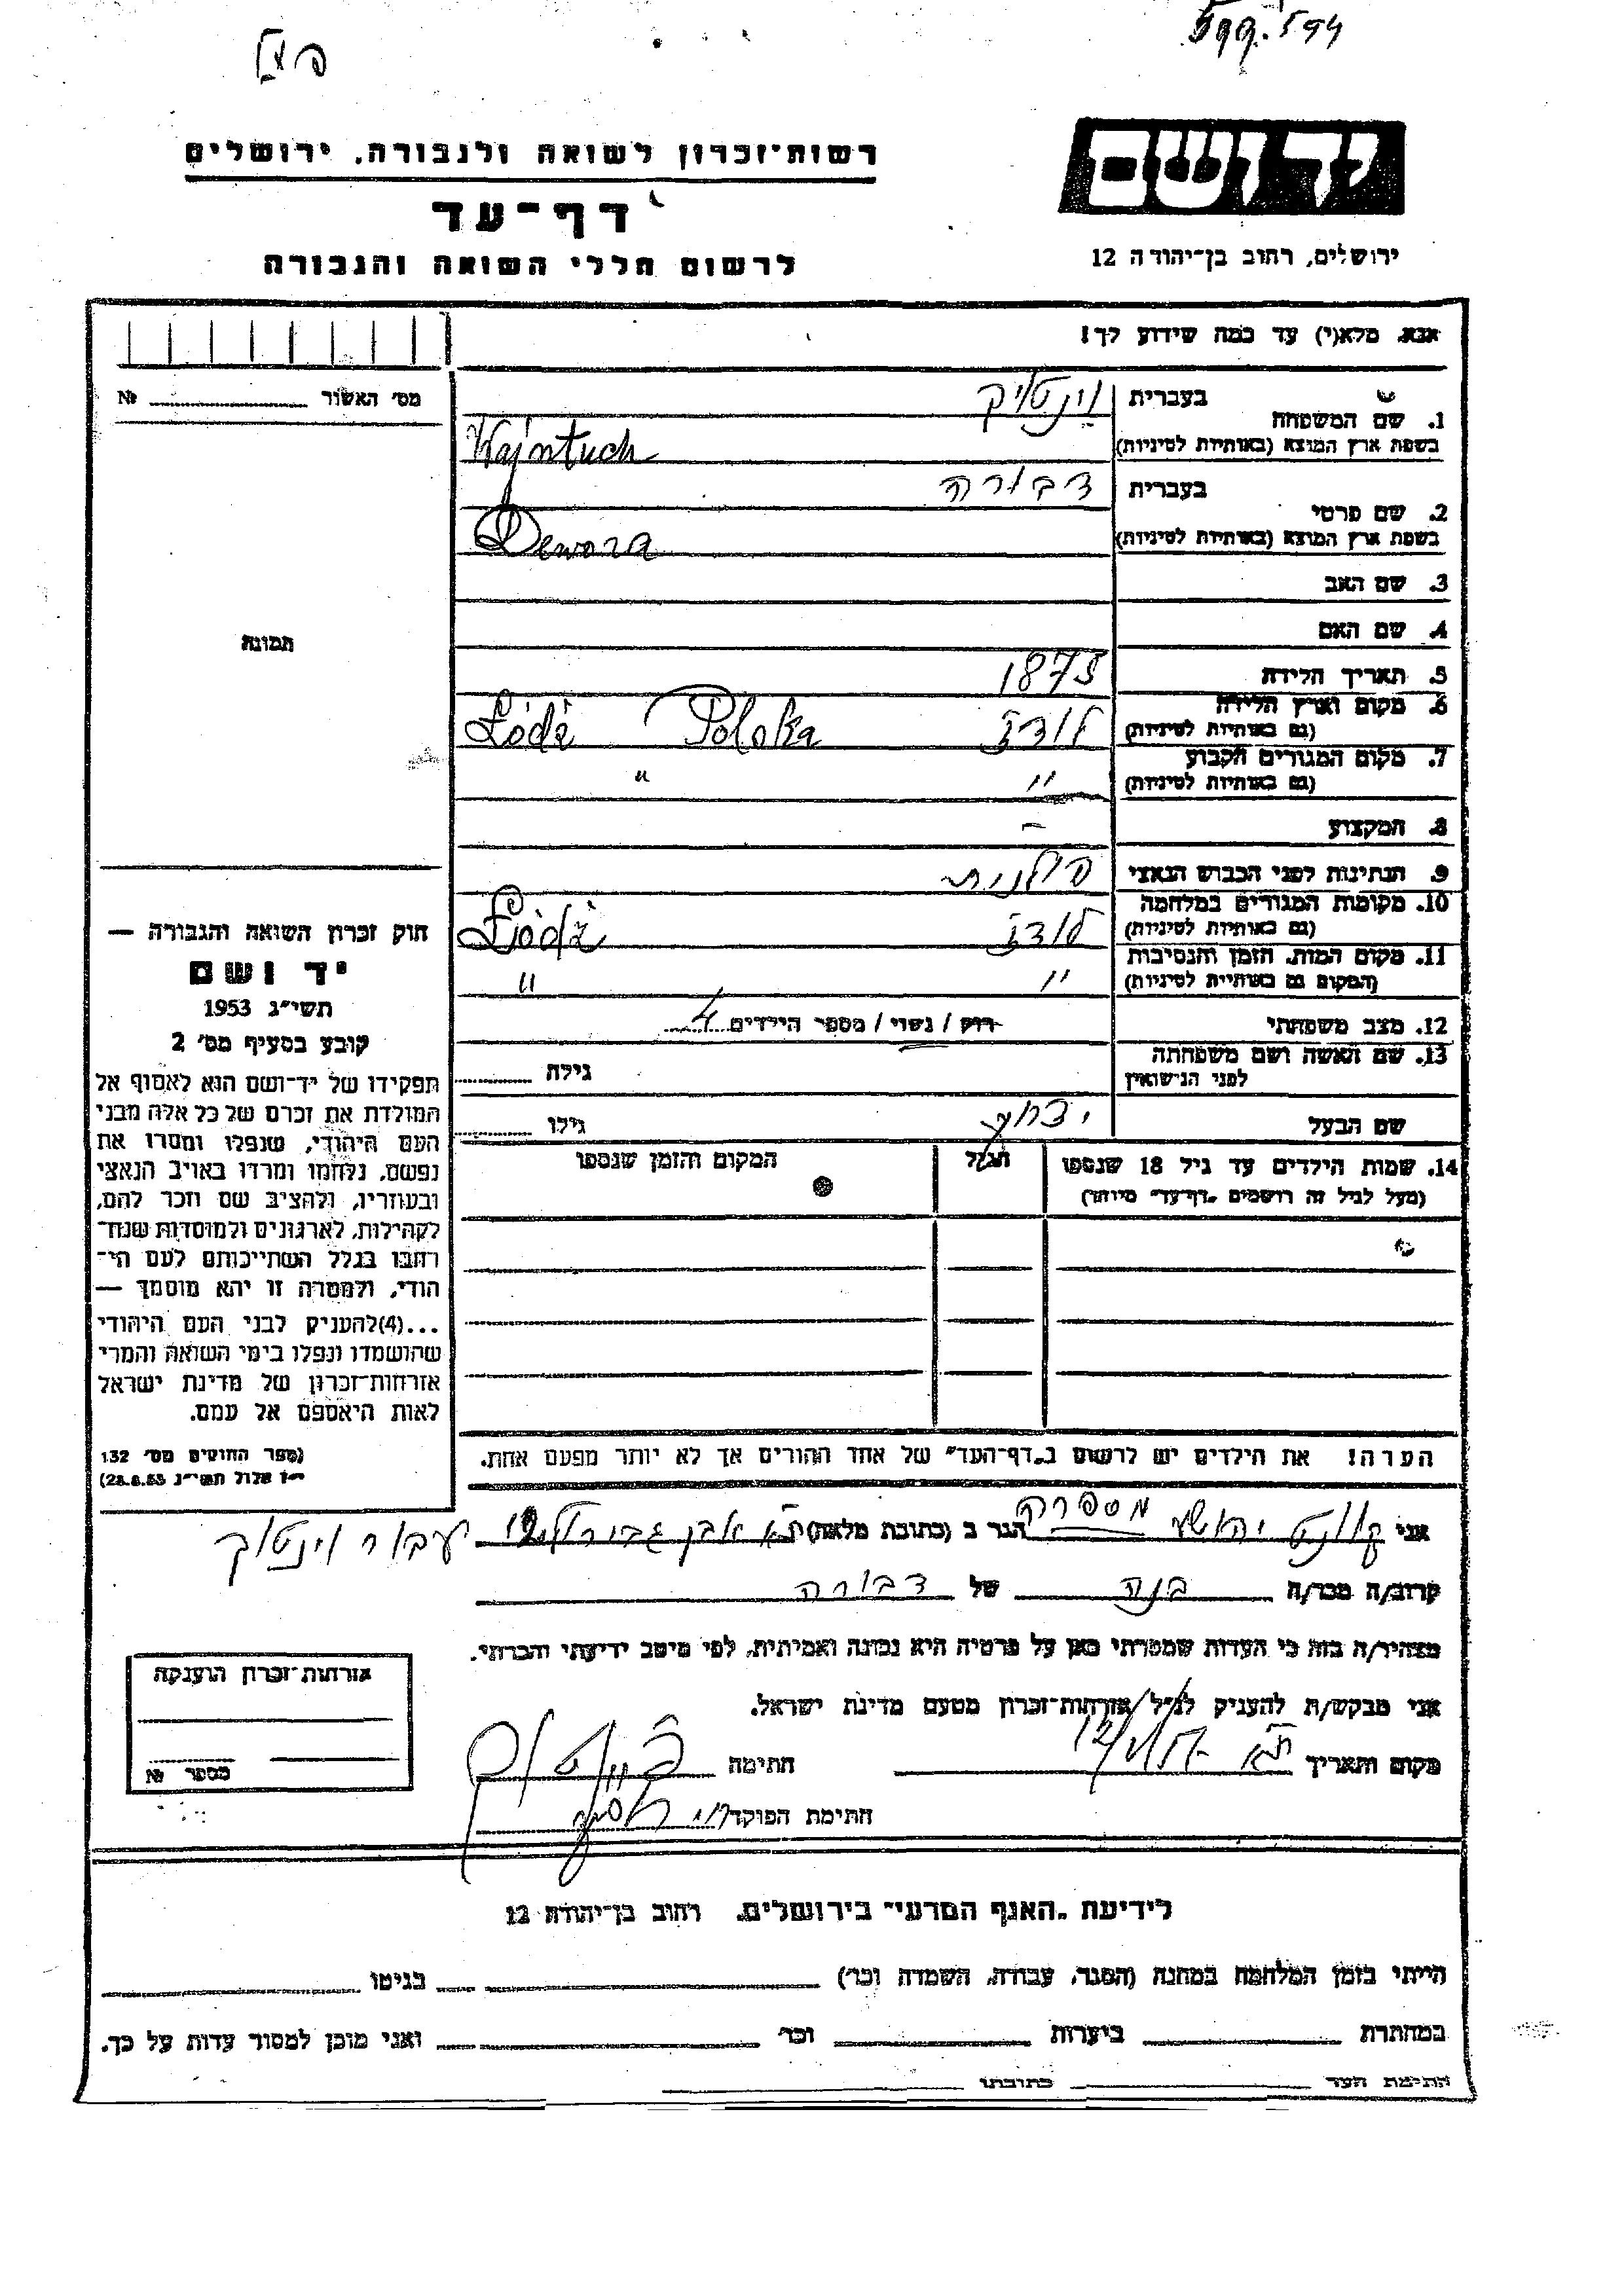 599.594
יד ושם
רשות-זכרון לשואה ולגבורה, ירושלים
דף-עד
ירושלים, רחוב בן-יהודה 12
לרשום חללי השואה והגבורה
אנא, מלא(י) עד כמה שידוע לך!
מס' האשור № 
בעברית
1. שם המשפחה
בשפת ארץ המוצא (באותיות לטיניות) Wajntuch
בעברית דבורה
2. שם פרטי
בשפת ארץ המוצא (באותיות לטיניות) Dewora
3. שם האב
4. שם האם
תמונה
5. תאריך הלידה 1875
6. מקום וארץ הלידה
(גם באותיות לטיניות) לודז Łódź Polska
7. מקום המגורים הקבוע
(גם באותיות לטיניות) " "
8. המקצוע -
9. הנתינות לפני הכבוש הנאצי פולנית
10. מקומות המגורים במלחמה
(גם באותיות לטיניות) לודז Łódź
11. מקום המות, הזמן והנסיבות
(המקום גם באותיות לטיניות) " "
12. מצב משפחתי רוק / נשוי / מספר הילדים 4
13. שם האשה ושם משפחתה
לפני הנישואין גילה
שם הבעל גילו
14. שמות הילדים עד גיל 18 שנספו הגיל המקום והזמן שנספו
(מעל לגיל זה רושמים "דף-עד" מיוחד)
הערה! את הילדים יש לרשום ב"דף-העד" של אחד ההורים אך לא יותר מפעם אחת.
חוק זכרון השואה והגבורה —
יד ושם
תשי"ג 1953
קובע בסעיף מס' 2
תפקידו של יד-ושם הוא לאסוף אל
המולדת את זכרם של כל אלה מבני
העם היהודי, שנפלו ומסרו את
נפשם, נלחמו ומרדו באויב הנאצי
ובעוזריו, ולהציב שם וזכר להם,
לקהילות, לארגונים ולמוסדות שנח-
רבו בגלל השתייכותם לעם הי-
הודי, ולמטרה זו יהא מוסמך —
...(4)להעניק לבני העם היהודי
שהושמדו ונפלו בימי השואה והמרי
אזרחות-זכרון של מדינת ישראל
לאות היאספם אל עמם.
(ספר החוקים מס' 132
י"ז אלול תשי"ג 28.8.53)
אני הגר ב (כתובת מלאה) ת"א אבן גבירול עבור וינטוך
קרוב/ה מכר/ה בנה של דבורה
מצהיר/ה בזה כי העדות שמסרתי כאן על פרטיה היא נכונה ואמיתית, לפי מיטב ידיעתי והכרתי.
אני מבקש/ת להעניק לנ"ל אזרחות-זכרון מטעם מדינת ישראל.
מקום ותאריך ת"א חתימה
חתימת הפוקד
אזרחות-זכרון הוענקה
מספר №
לידיעת "האגף המדעי" בירושלים, רחוב בן-יהודה 12
הייתי בזמן המלחמה במחנה (הסגר, עבודה, השמדה וכו') בגיטו
במחתרת ביערות וכו' ואני מוכן למסור עדות על כך.
חתימת העד כתובתו